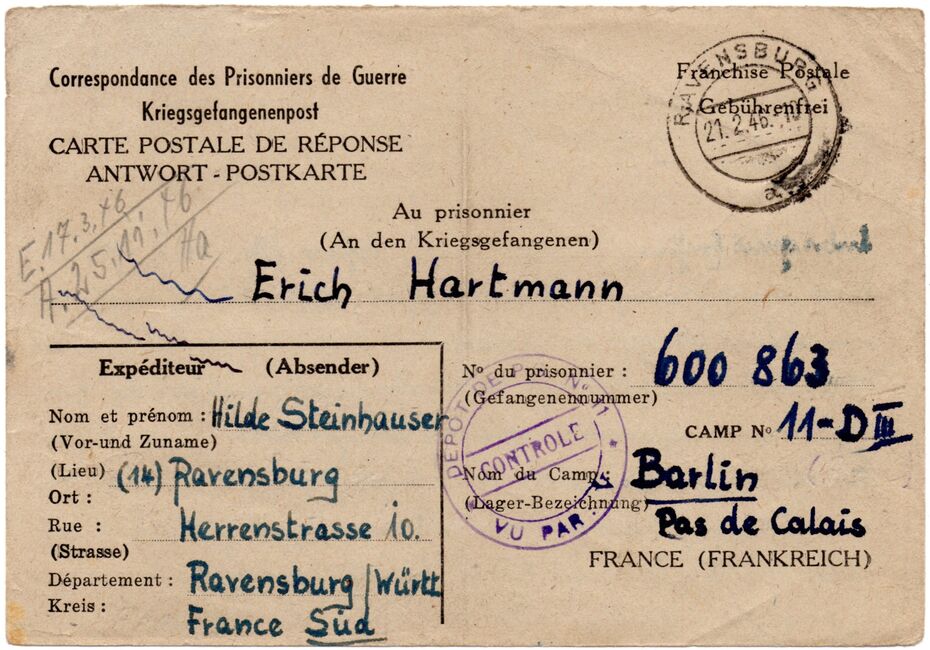 Correspondance des Prisonniers de Guerre
Kriegsgefangenenpost
CARTE POSTALE DE RÉPONSE
ANTWORT - POSTKARTE
Franchise Postale
Gebührenfrei
RAVENSBURG
21.2.46.-10
a
E. 17.3.46
A. 2.5.11.46
Ha
Au prisonnier
(An den Kriegsgefangenen)
Erich Hartmann
Expéditeur (Absender)
Nom et prénom : Hilde Steinhauser
(Vor-und Zuname)
(Lieu) (14) Ravensburg
Ort :
Rue : Herrenstrasse 10.
(Strasse)
Département : Ravensburg/Württ
Kreis : France Süd
No du prisonnier : 600 863
(Gefangenennummer)
CAMP No 11-D III
Nom du Camp : Barlin
(Lager-Bezeichnung) Pas de Calais
FRANCE (FRANKREICH)
DEPOT DE P.G. No 11
CONTROLE
VU PAR